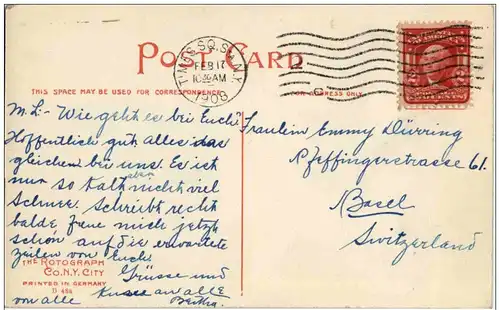 POST CARD
TIMES SQ. STA. N.Y.
FEB 17
1908
THIS SPACE MAY BE USED FOR CORRESPONDENCE
FOR ADDRESS ONLY
M. L. - Wie geht es bei Euch?
Hoffentlich gut. Alles das
gleichen bei uns. Es ist
nur so kalt aber nicht viel
Schnee. Schreibt recht
balde. Freue mich jetzt
schon auf die erwartete
Zeilen von Euch.
Grüsse und
Küsse an alle
von alle Bertha.
Fraulein Emmy Dürring
Pfeffingerstrasse 61.
Basel
Switzerland
THE ROTOGRAPH
CO. N.Y. CITY
PRINTED IN GERMANY